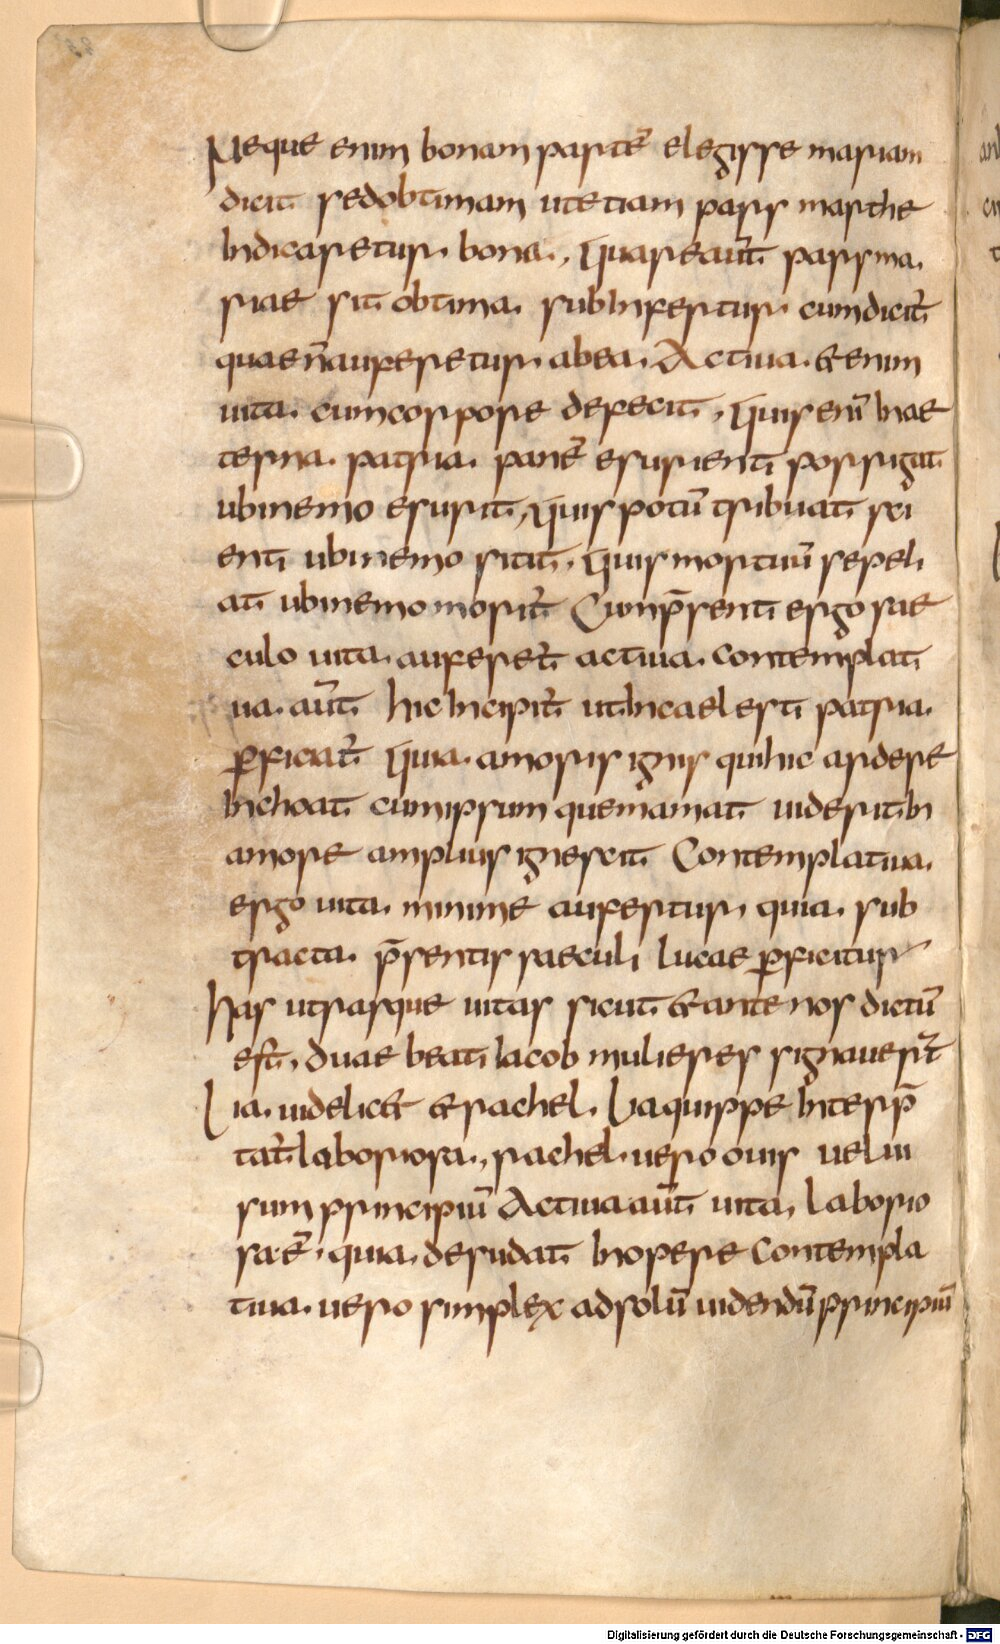 Neque enim bonam partē elegisse mariam
dicit sed obtimam ut etiam pars marthe
Indicaretur bona, Quare aut̄ pars ma
riae sit obtima subInfertur cum dicit̄
quae n̄ auferetur ab ea. Activa &enim
uita cum corpore defecit, Quis enī In ae
terna patria panē esurienti porrigat
ubi nemo esurit, Quis potū tribuat siti
enti ubi nemo sitit, Quis mortuū sepeli
at ubi nemo morit̄ Cum p̄senti ergo sae
culo uita aufert̄ activa contemplati
ua aut̄ hic Incipit̄ ut In caelesti patria
ꝑficiat̄ Quia amoris ignis qui hic ardere
Inchoat cum ipsum quem amat uiderit In
amore amplius ignescit Contemplativa
ergo uita minime aufertur, quia sub
tracta p̄sentis saeculi luce ꝑficitur
has utrasque uitas sicut & ante nos dictū
est, duae beati Iacob mulieres signauer̄t
Lia uidelic& & rachel. Lia quippe Interp̄
tat̄ laboriosa, rachel uero ouis uel ui
sum principiū Activa aut̄ uita, laborio
sa ē, quia desudat In opere contempla
tiua uero simplex ad solū uidendū principiū
Digitalisierung gefördert durch die Deutsche Forschungsgemeinschaft - DFG